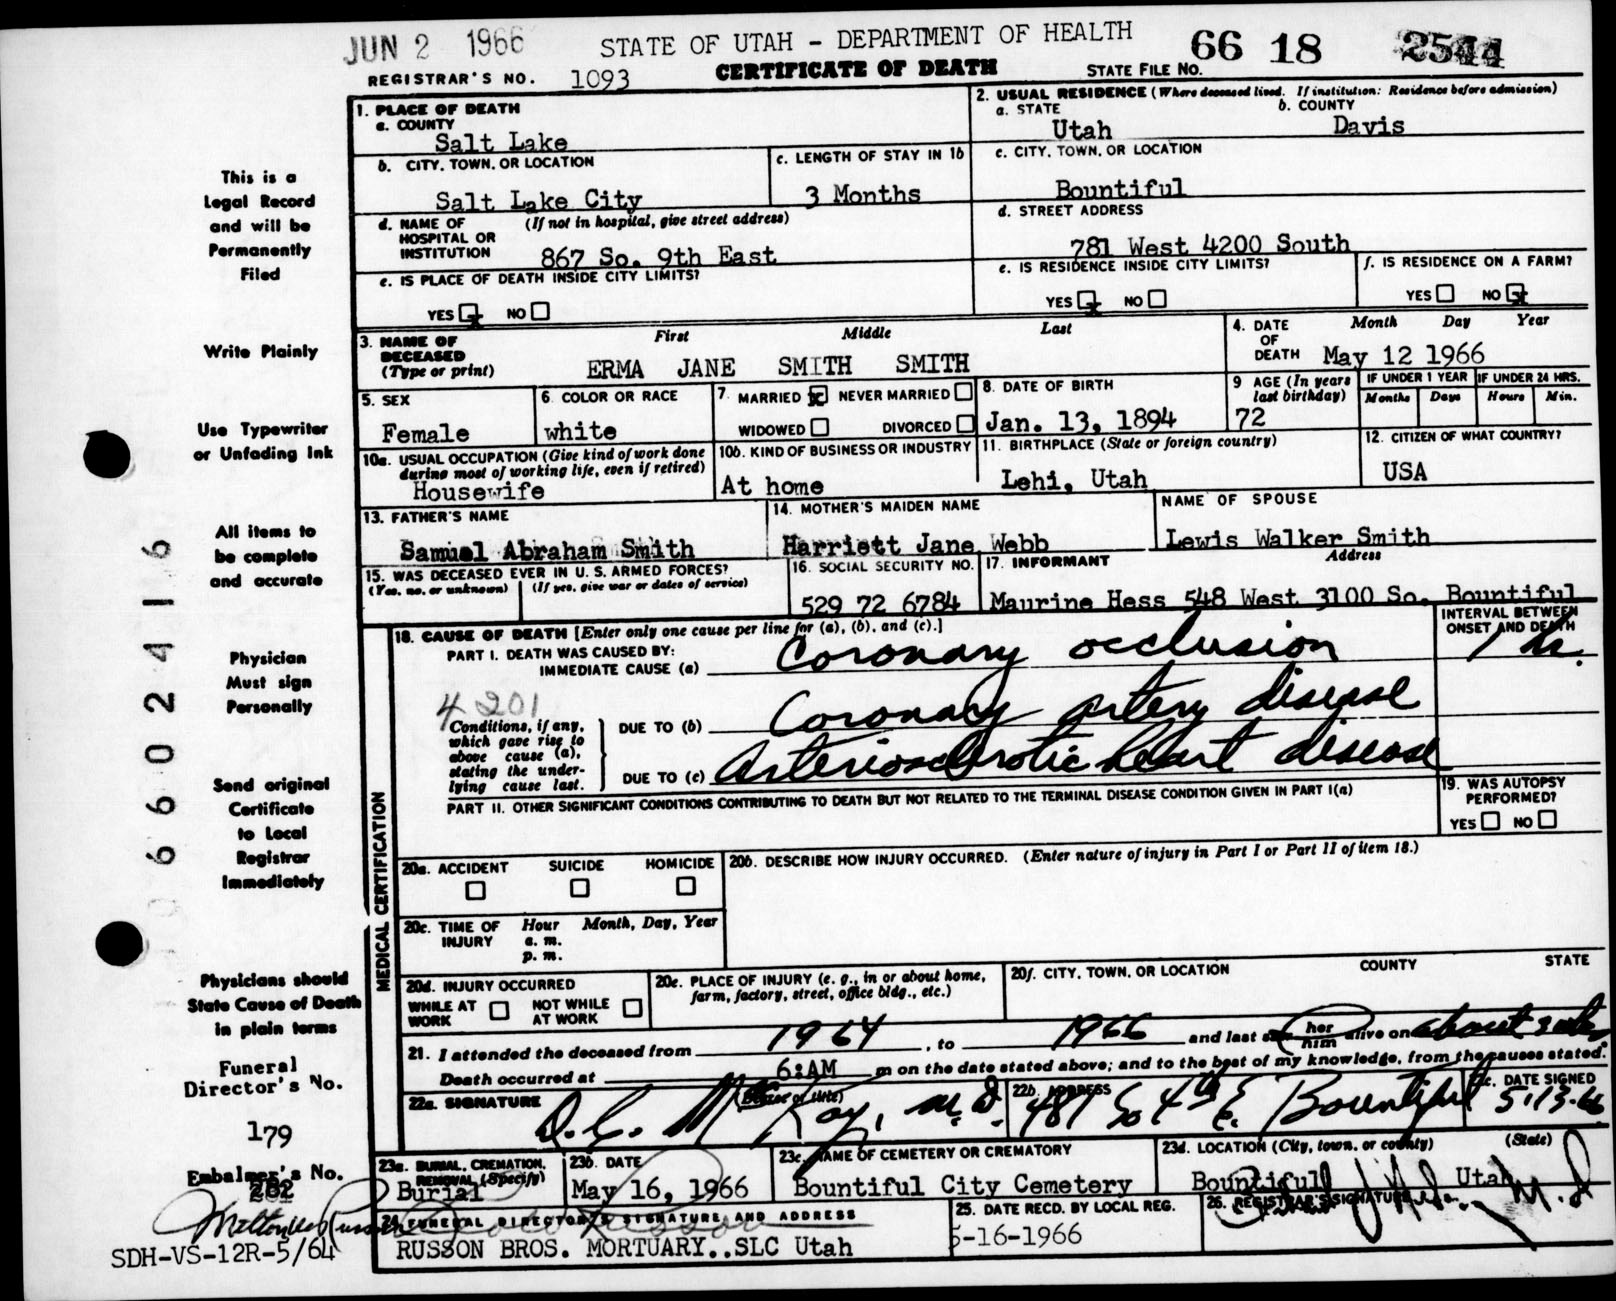 JUN 2 1966
STATE OF UTAH - DEPARTMENT OF HEALTH
66 18 2544
REGISTRAR'S NO. 1093
CERTIFICATE OF DEATH
STATE FILE NO.
This is a
Legal Record
and will be
Permanently
Filed
Write Plainly
Use Typewriter
or Unfading Ink
All items to
be complete
and accurate
Physician
Must sign
Personally
Send original
Certificate
to Local
Registrar
Immediately
Physicians should
State Cause of Death
in plain terms
Funeral
Director's No.
179
Embalmer's No.
282
SDH-VS-12R-5/64
66 02416
1. PLACE OF DEATH
a. COUNTY
Salt Lake
2. USUAL RESIDENCE (Where deceased lived. If institution: Residence before admission)
a. STATE b. COUNTY
Utah Davis
b. CITY, TOWN, OR LOCATION
Salt Lake City
c. LENGTH OF STAY IN 1b
3 Months
c. CITY, TOWN, OR LOCATION
Bountiful
d. NAME OF HOSPITAL OR INSTITUTION (If not in hospital, give street address)
867 So. 9th East
d. STREET ADDRESS
781 West 4200 South
e. IS PLACE OF DEATH INSIDE CITY LIMITS?
YES x NO
e. IS RESIDENCE INSIDE CITY LIMITS?
YES x NO
f. IS RESIDENCE ON A FARM?
YES NO x
3. NAME OF DECEASED (Type or print)
First Middle Last
ERMA JANE SMITH SMITH
4. DATE OF DEATH Month Day Year
May 12 1966
5. SEX
Female
6. COLOR OR RACE
white
7. MARRIED x NEVER MARRIED
WIDOWED DIVORCED
8. DATE OF BIRTH
Jan. 13, 1894
9 AGE (In years last birthday)
72
IF UNDER 1 YEAR IF UNDER 24 HRS.
Months Days Hours Min.
10a. USUAL OCCUPATION (Give kind of work done during most of working life, even if retired)
Housewife
10b. KIND OF BUSINESS OR INDUSTRY
At home
11. BIRTHPLACE (State or foreign country)
Lehi, Utah
12. CITIZEN OF WHAT COUNTRY?
USA
13. FATHER'S NAME
Samuel Abraham Smith
14. MOTHER'S MAIDEN NAME
Harriett Jane Webb
NAME OF SPOUSE
Lewis Walker Smith
15. WAS DECEASED EVER IN U. S. ARMED FORCES?
(Yes, no, or unknown) (If yes, give war or dates of service)
16. SOCIAL SECURITY NO.
529 72 6784
17. INFORMANT Address
Maurine Hess 548 West 3100 So. Bountiful
MEDICAL CERTIFICATION
18. CAUSE OF DEATH [Enter only one cause per line for (a), (b), and (c).]
INTERVAL BETWEEN ONSET AND DEATH
PART I. DEATH WAS CAUSED BY:
IMMEDIATE CAUSE (a) Coronary occlusion 1 hr.
4201
Conditions, if any, which gave rise to above cause (a), stating the underlying cause last.
DUE TO (b) Coronary artery disease
DUE TO (c) Arteriosclerotic heart disease
PART II. OTHER SIGNIFICANT CONDITIONS CONTRIBUTING TO DEATH BUT NOT RELATED TO THE TERMINAL DISEASE CONDITION GIVEN IN PART I(a)
19. WAS AUTOPSY PERFORMED?
YES NO
20a. ACCIDENT SUICIDE HOMICIDE
20b. DESCRIBE HOW INJURY OCCURRED. (Enter nature of injury in Part I or Part II of item 18.)
20c. TIME OF INJURY Hour Month, Day, Year
a. m.
p. m.
20d. INJURY OCCURRED
WHILE AT WORK NOT WHILE AT WORK
20e. PLACE OF INJURY (e. g., in or about home, farm, factory, street, office bldg., etc.)
20f. CITY, TOWN, OR LOCATION COUNTY STATE
21. I attended the deceased from 1964, to 1966 and last saw her him alive on about
Death occurred at 6:AM m on the date stated above; and to the best of my knowledge, from the causes stated.
22a. SIGNATURE (Degree or title)
D.C. McKay, M.D.
22b. ADDRESS
481 So 4th E. Bountiful
22c. DATE SIGNED
5-13-66
23a. BURIAL, CREMATION, REMOVAL (Specify)
Burial
23b. DATE
May 16, 1966
23c. NAME OF CEMETERY OR CREMATORY
Bountiful City Cemetery
23d. LOCATION (City, town, or county) (State)
Bountiful Utah
24. FUNERAL DIRECTOR'S SIGNATURE AND ADDRESS
RUSSON BROS. MORTUARY..SLC Utah
25. DATE RECD. BY LOCAL REG.
5-16-1966
26. REGISTRAR'S SIGNATURE